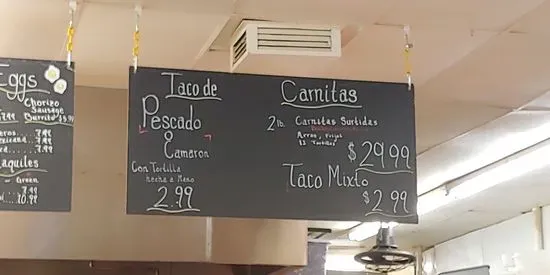 Eggs
Chorizo
Sausage
Burrito
7.99
7.99
7.99
aquiles
Green
7.99
10.99
Taco de
Pescado
o
Camaron
Con Tortilla
hecha a Mano
2.99
Carnitas
2 lb. Carnitas Surtidas
Arroz, Frijol
$29.99
Taco Mixto
$2.99